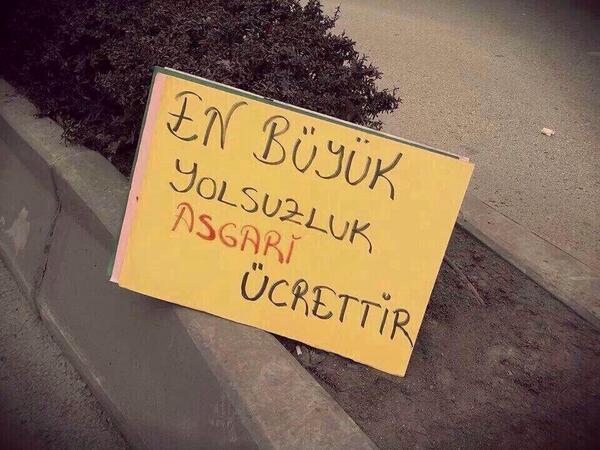 EN BÜYÜK
YOLSUZLUK
ASGARİ
ÜCRETTİR